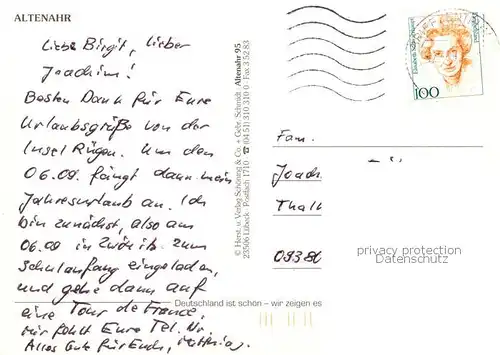 ALTENAHR
Liebe Birgit, lieber
Joachim!
Besten Dank für Eure
Urlaubsgrüße von der
Insel Rügen. Um den
06.09. fängt dann mein
Jahresurlaub an. Ich
bin zunächst, also am
06.09 in zum
Schulanfang eingeladen,
und gehe dann auf
eine Tour de France,
mir fehlt Eure Tel. Nr.
Alles Gute für Euch,
© Herst. u. Verlag Schöning & Co. + Gebr. Schmidt
23506 Lübeck · Postfach 1710 · ☎ (04 51) 310 310 0 · Fax 3 52 83
Altenahr 95
Deutschland ist schön – wir zeigen es
100
Fam.
Joach
Thalh
privacy protection
Datenschutz